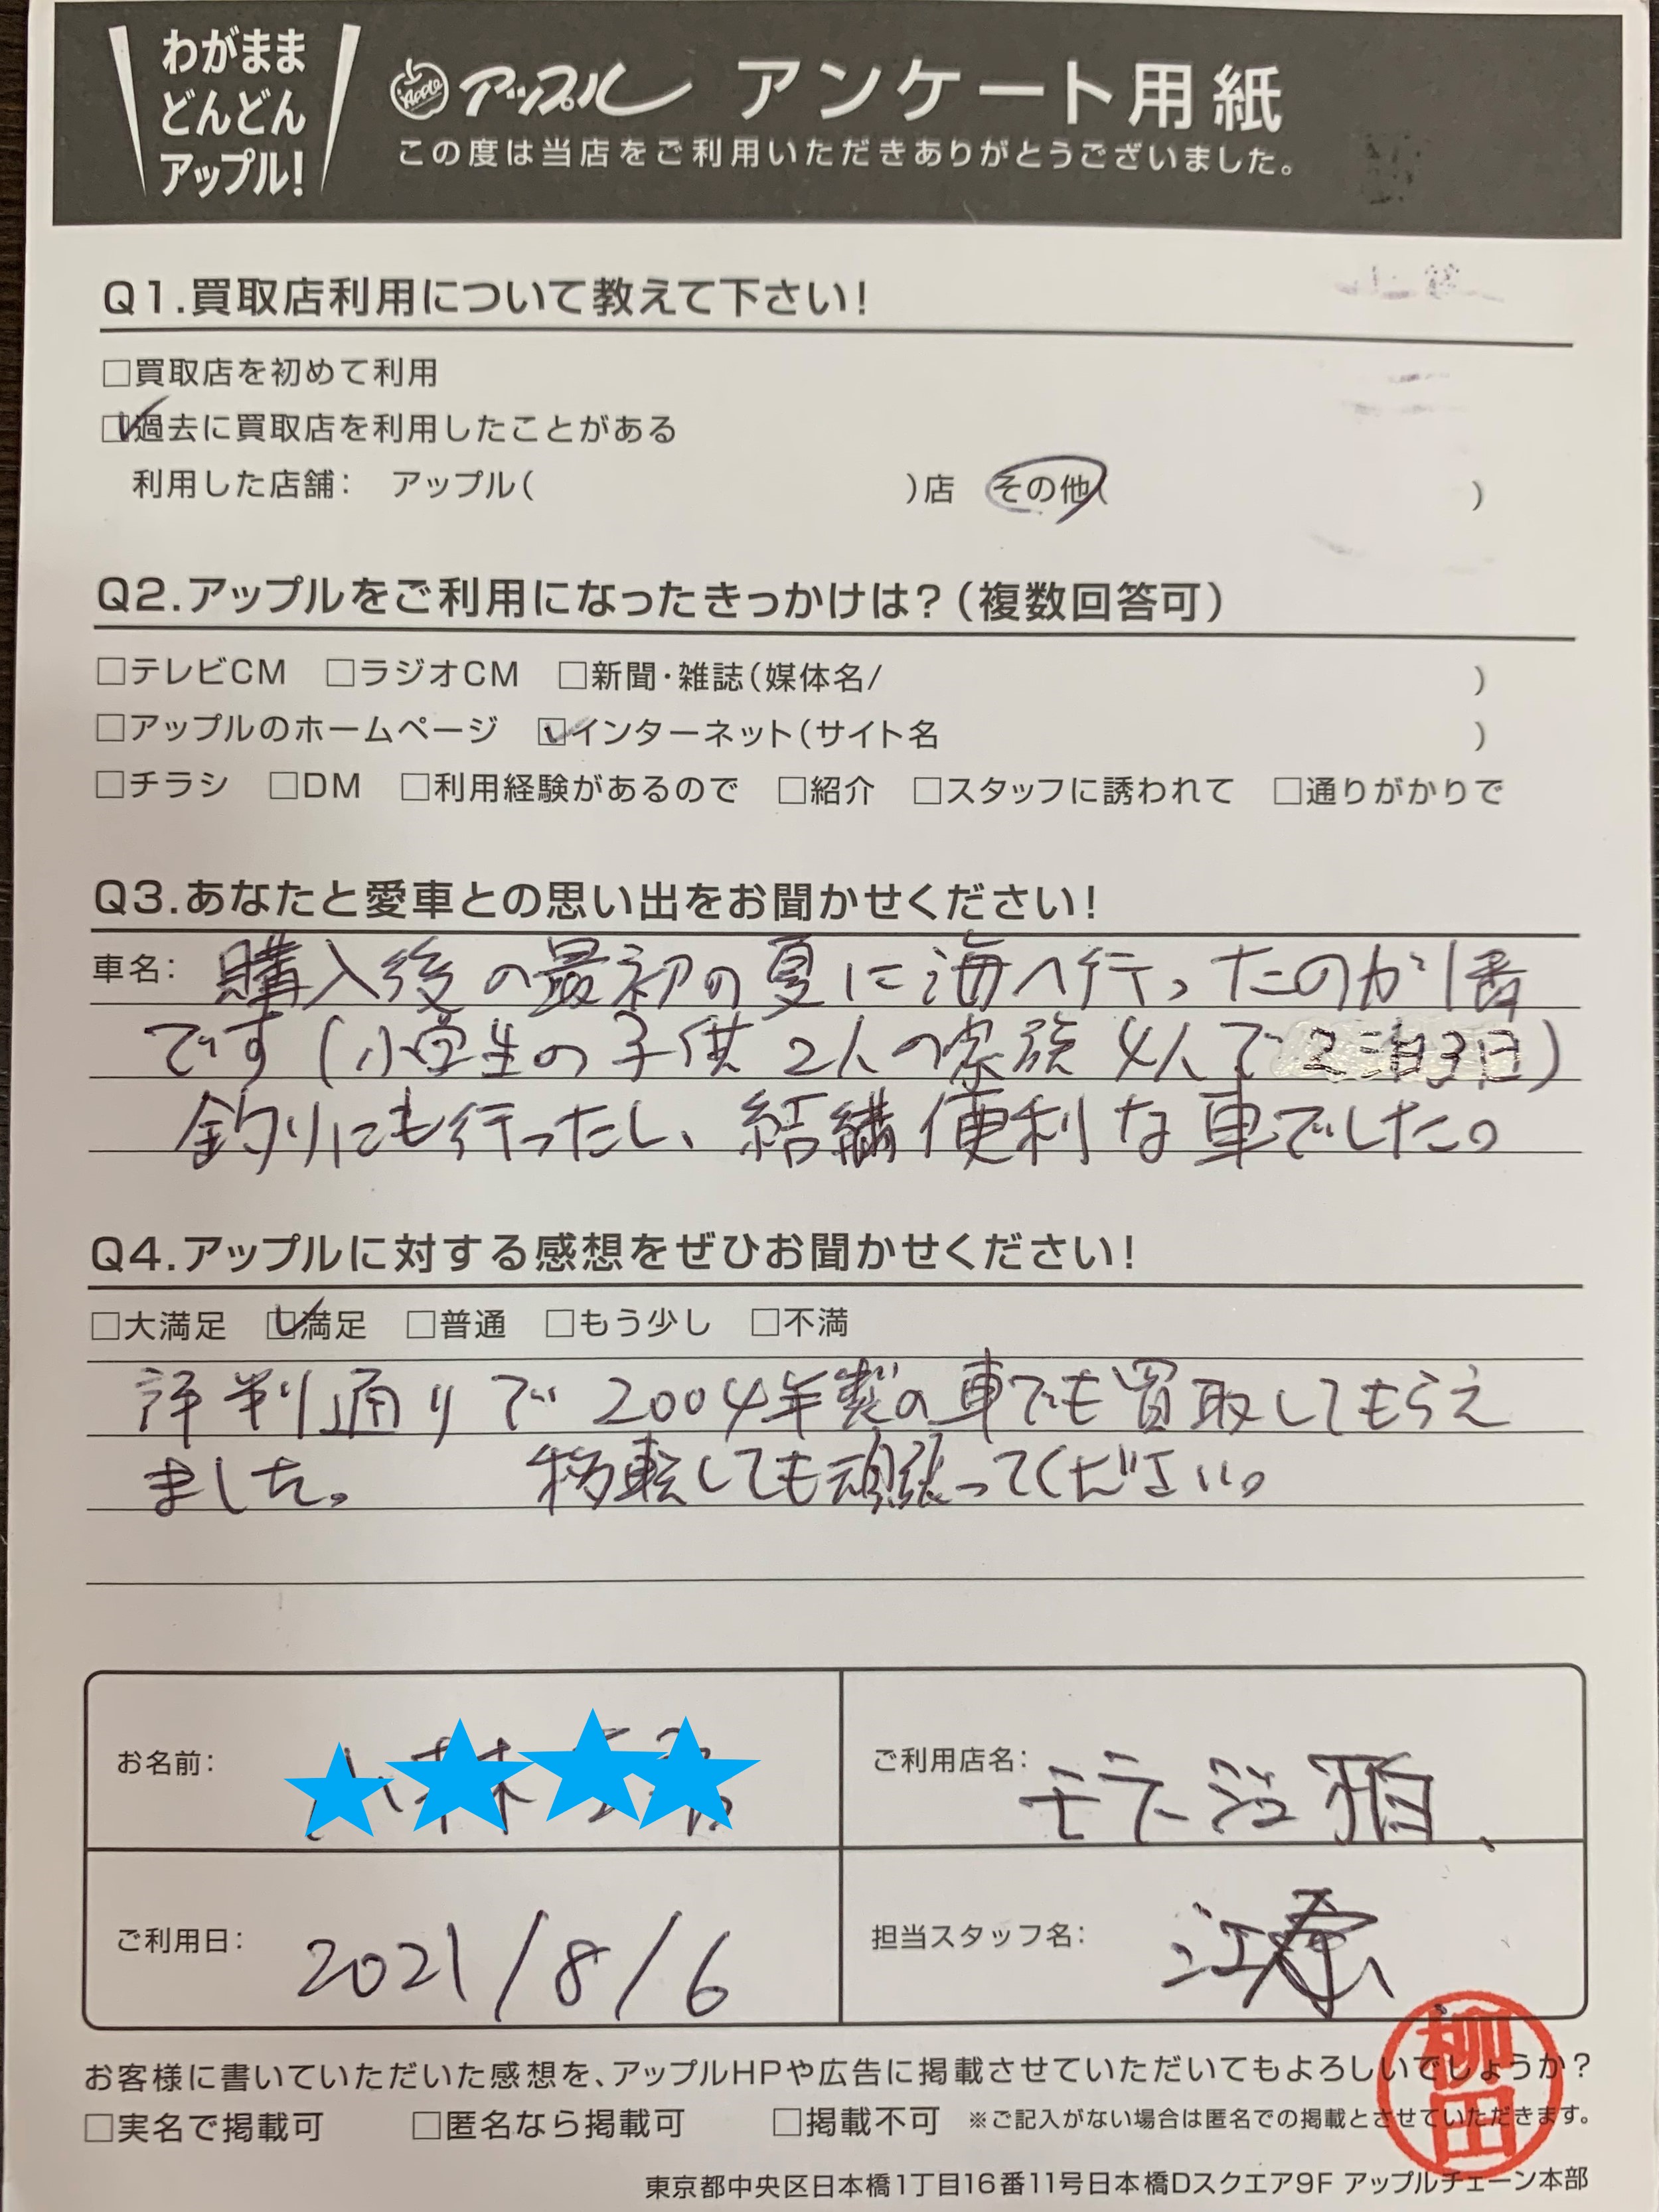 わがまま
どんどん
アップル!
Apple アップル アンケート用紙
この度は当店をご利用いただきありがとうございました。
Q1.買取店利用について教えて下さい!
□買取店を初めて利用
☑過去に買取店を利用したことがある
利用した店舗: アップル( )店 その他( )
Q2.アップルをご利用になったきっかけは?(複数回答可)
□テレビCM □ラジオCM □新聞・雑誌(媒体名/ )
□アップルのホームページ ☑インターネット(サイト名 )
□チラシ □DM □利用経験があるので □紹介 □スタッフに誘われて □通りがかりで
Q3.あなたと愛車との思い出をお聞かせください!
車名: 購入後の最初の夏に海へ行ったのが1番
です(小学生の子供2人の家族4人で2泊3日)
釣りにも行ったし、結構便利な車でした。
Q4.アップルに対する感想をぜひお聞かせください!
□大満足 ☑満足 □普通 □もう少し □不満
評判通りで2004年製の車でも買取してもらえ
ました。 移転しても頑張ってください。
お名前:
ご利用店名:
ご利用日: 2021/8/6
担当スタッフ名: 江原
柳田
お客様に書いていただいた感想を、アップルHPや広告に掲載させていただいてもよろしいでしょうか?
□実名で掲載可 □匿名なら掲載可 □掲載不可 ※ご記入がない場合は匿名での掲載とさせていただきます。
東京都中央区日本橋1丁目16番11号日本橋Dスクエア9F アップルチェーン本部